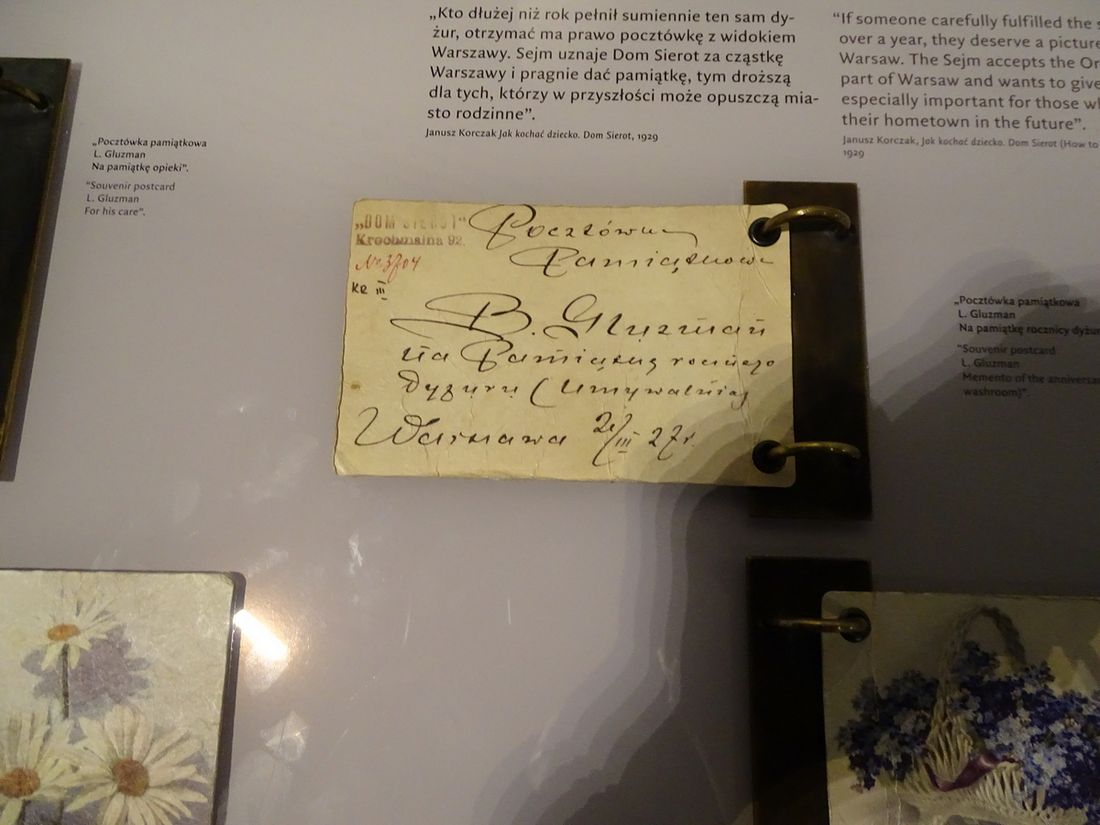 „Kto dłużej niż rok pełnił sumiennie ten sam dy-
żur, otrzymać ma prawo pocztówkę z widokiem
Warszawy. Sejm uznaje Dom Sierot za cząstkę
Warszawy i pragnie dać pamiątkę, tym droższą
dla tych, którzy w przyszłości może opuszczą mia-
sto rodzinne”.
Janusz Korczak Jak kochać dziecko. Dom Sierot, 1929
“If someone carefully fulfilled the
over a year, they deserve a picture
Warsaw. The Sejm accepts the Or
part of Warsaw and wants to give
especially important for those wh
their hometown in the future”.
Janusz Korczak, Jak kochać dziecko. Dom Sierot (How to
1929
„Pocztówka pamiątkowa
L. Gluzman
Na pamiątkę opieki”.
“Souvenir postcard
L. Gluzman
For his care”.
„DOM SIEROT“
Krochmalna 92.
No 3704
Ke III
Pocztówka
Pamiątkowa
B. Gluzman
na Pamiątkę rocznego
Dyżuru (Umywalnia)
Warszawa III 27 r.
„Pocztówka pamiątkowa
L. Gluzman
Na pamiątkę rocznicy dyżur
“Souvenir postcard
L. Gluzman
Memento of the anniversa
washroom)”.